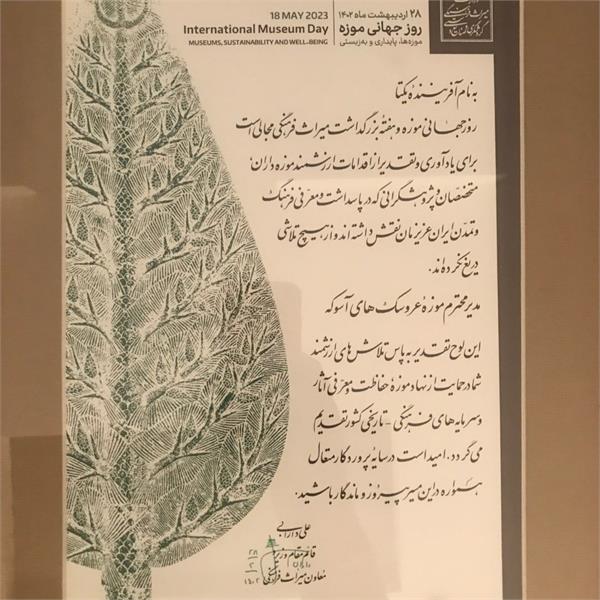 18 MAY 2023
International Museum Day
MUSEUMS, SUSTAINABILITY AND WELL-BEING
۲۸ اردیبهشت ماه ۱۴۰۲
روز جهانی موزه
موزه‌ها، پایداری و به‌زیستی
به نام آفریننده یکتا
روز جهانی موزه و هفته بزرگداشت میراث فرهنگی مجالی است
برای یادآوری و تقدیر از اقدامات ارزشمند موزه داران،
متخصصان و پژوهشگرانی که در پاسداشت و معرفی فرهنگ
و تمدن ایران عزیزمان نقش داشته اند و از هیچ تلاشی
دریغ نکرده اند.
مدیر محترم موزه عروسک های آسوکه
این لوح تقدیر به پاس تلاش های ارزشمند
شما در حمایت از نهاد موزه حفاظت و معرفی آثار
و سرمایه های فرهنگی - تاریخی کشور تقدیم
می گردد. امید است در سایه پروردگار متعال
همواره در این مسیر پیروز و ماندگار باشید.
علی دارابی
قائم مقام وزیر
معاون میراث فرهنگی